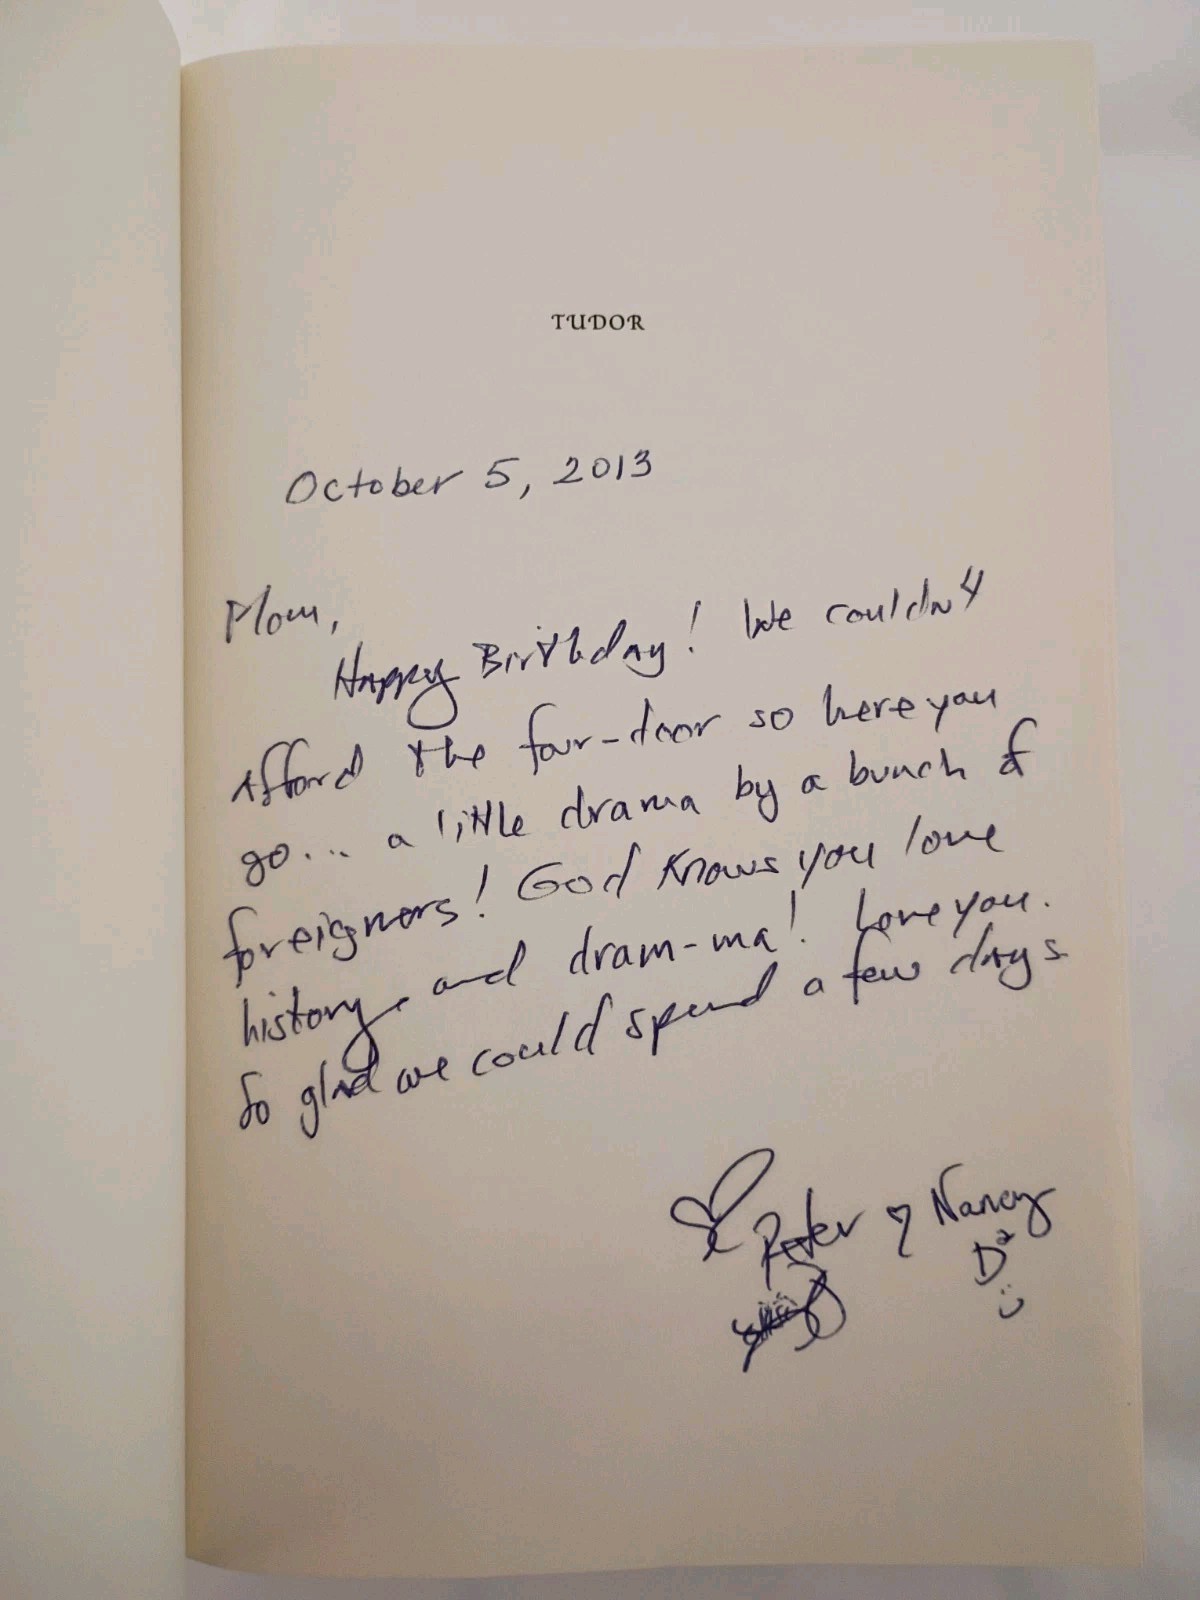 TUDOR
October 5, 2013
Mom,
Happy Birthday! We couldn't
afford the four-door so here you
go... a little drama by a bunch of
foreigners! God knows you love
history, and dram-ma! Love you.
So glad we could spend a few days
Peter Nancy
D²